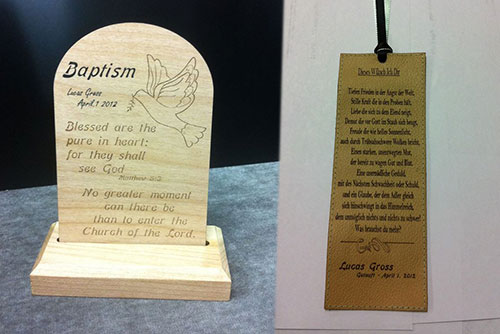 Baptism
Lucas Gross
April 1 2012
Blessed are the
pure in heart:
for they shall
see God
Matthew 5:8
No greater moment
can there be
than to enter the
Church of the Lord.
Dieses Wünsch Ich Dir
Tiefen Frieden in der Angst der Welt,
Stille Kraft die in den Proben hält,
Liebe die sich zu dem Elend neigt,
Demut die vor Gott im Staub sich beugt,
Freude die wie helles Sonnenlicht,
auch durch Trübsalsschwere Wolken bricht,
Einen starken, unentwegten Mut,
der bereit zu wagen Gut und Blut.
Eine unermüdliche Geduld,
mit des Nächsten Schwachheit oder Schuld,
und ein Glaube, der dem Adler gleich
sich hinschwingt in das Himmelreich,
dem unmöglich nichts und nichts zu schwer!
Was brauchst du mehr?
Lucas Gross
Getauft - April 1, 2012